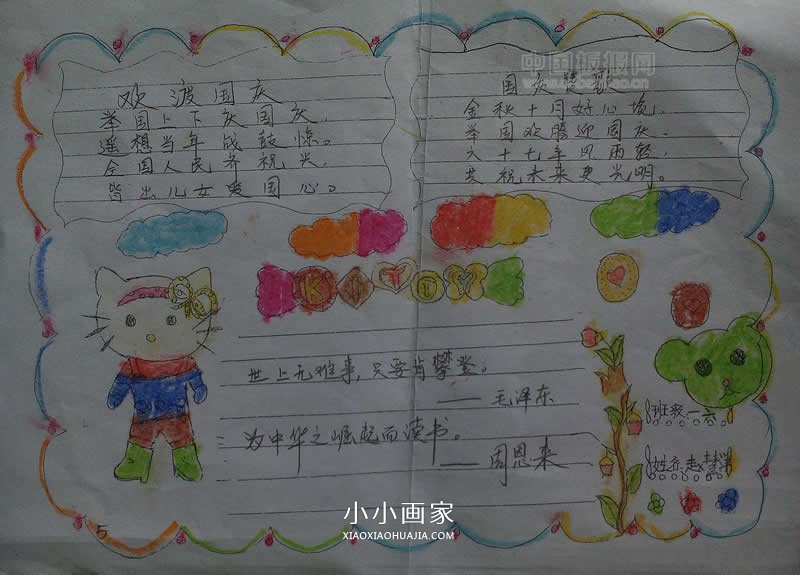 欢渡国庆
举国上下庆国庆，
遥想当年战鼓惊。
全国人民齐祝兴，
皆出儿女爱国心。
中国板报网
国庆赞歌
金秋十月好心境，
举国欢腾迎国庆。
六十七年风雨轻，
共祝未来更光明。
KITTY
世上无难事，只要肯攀登。
——毛泽东
为中华之崛起而读书。
——周恩来
班级:一六
姓名:赵慧
5
小小画家
XIAOXIAOHUAJIA.COM